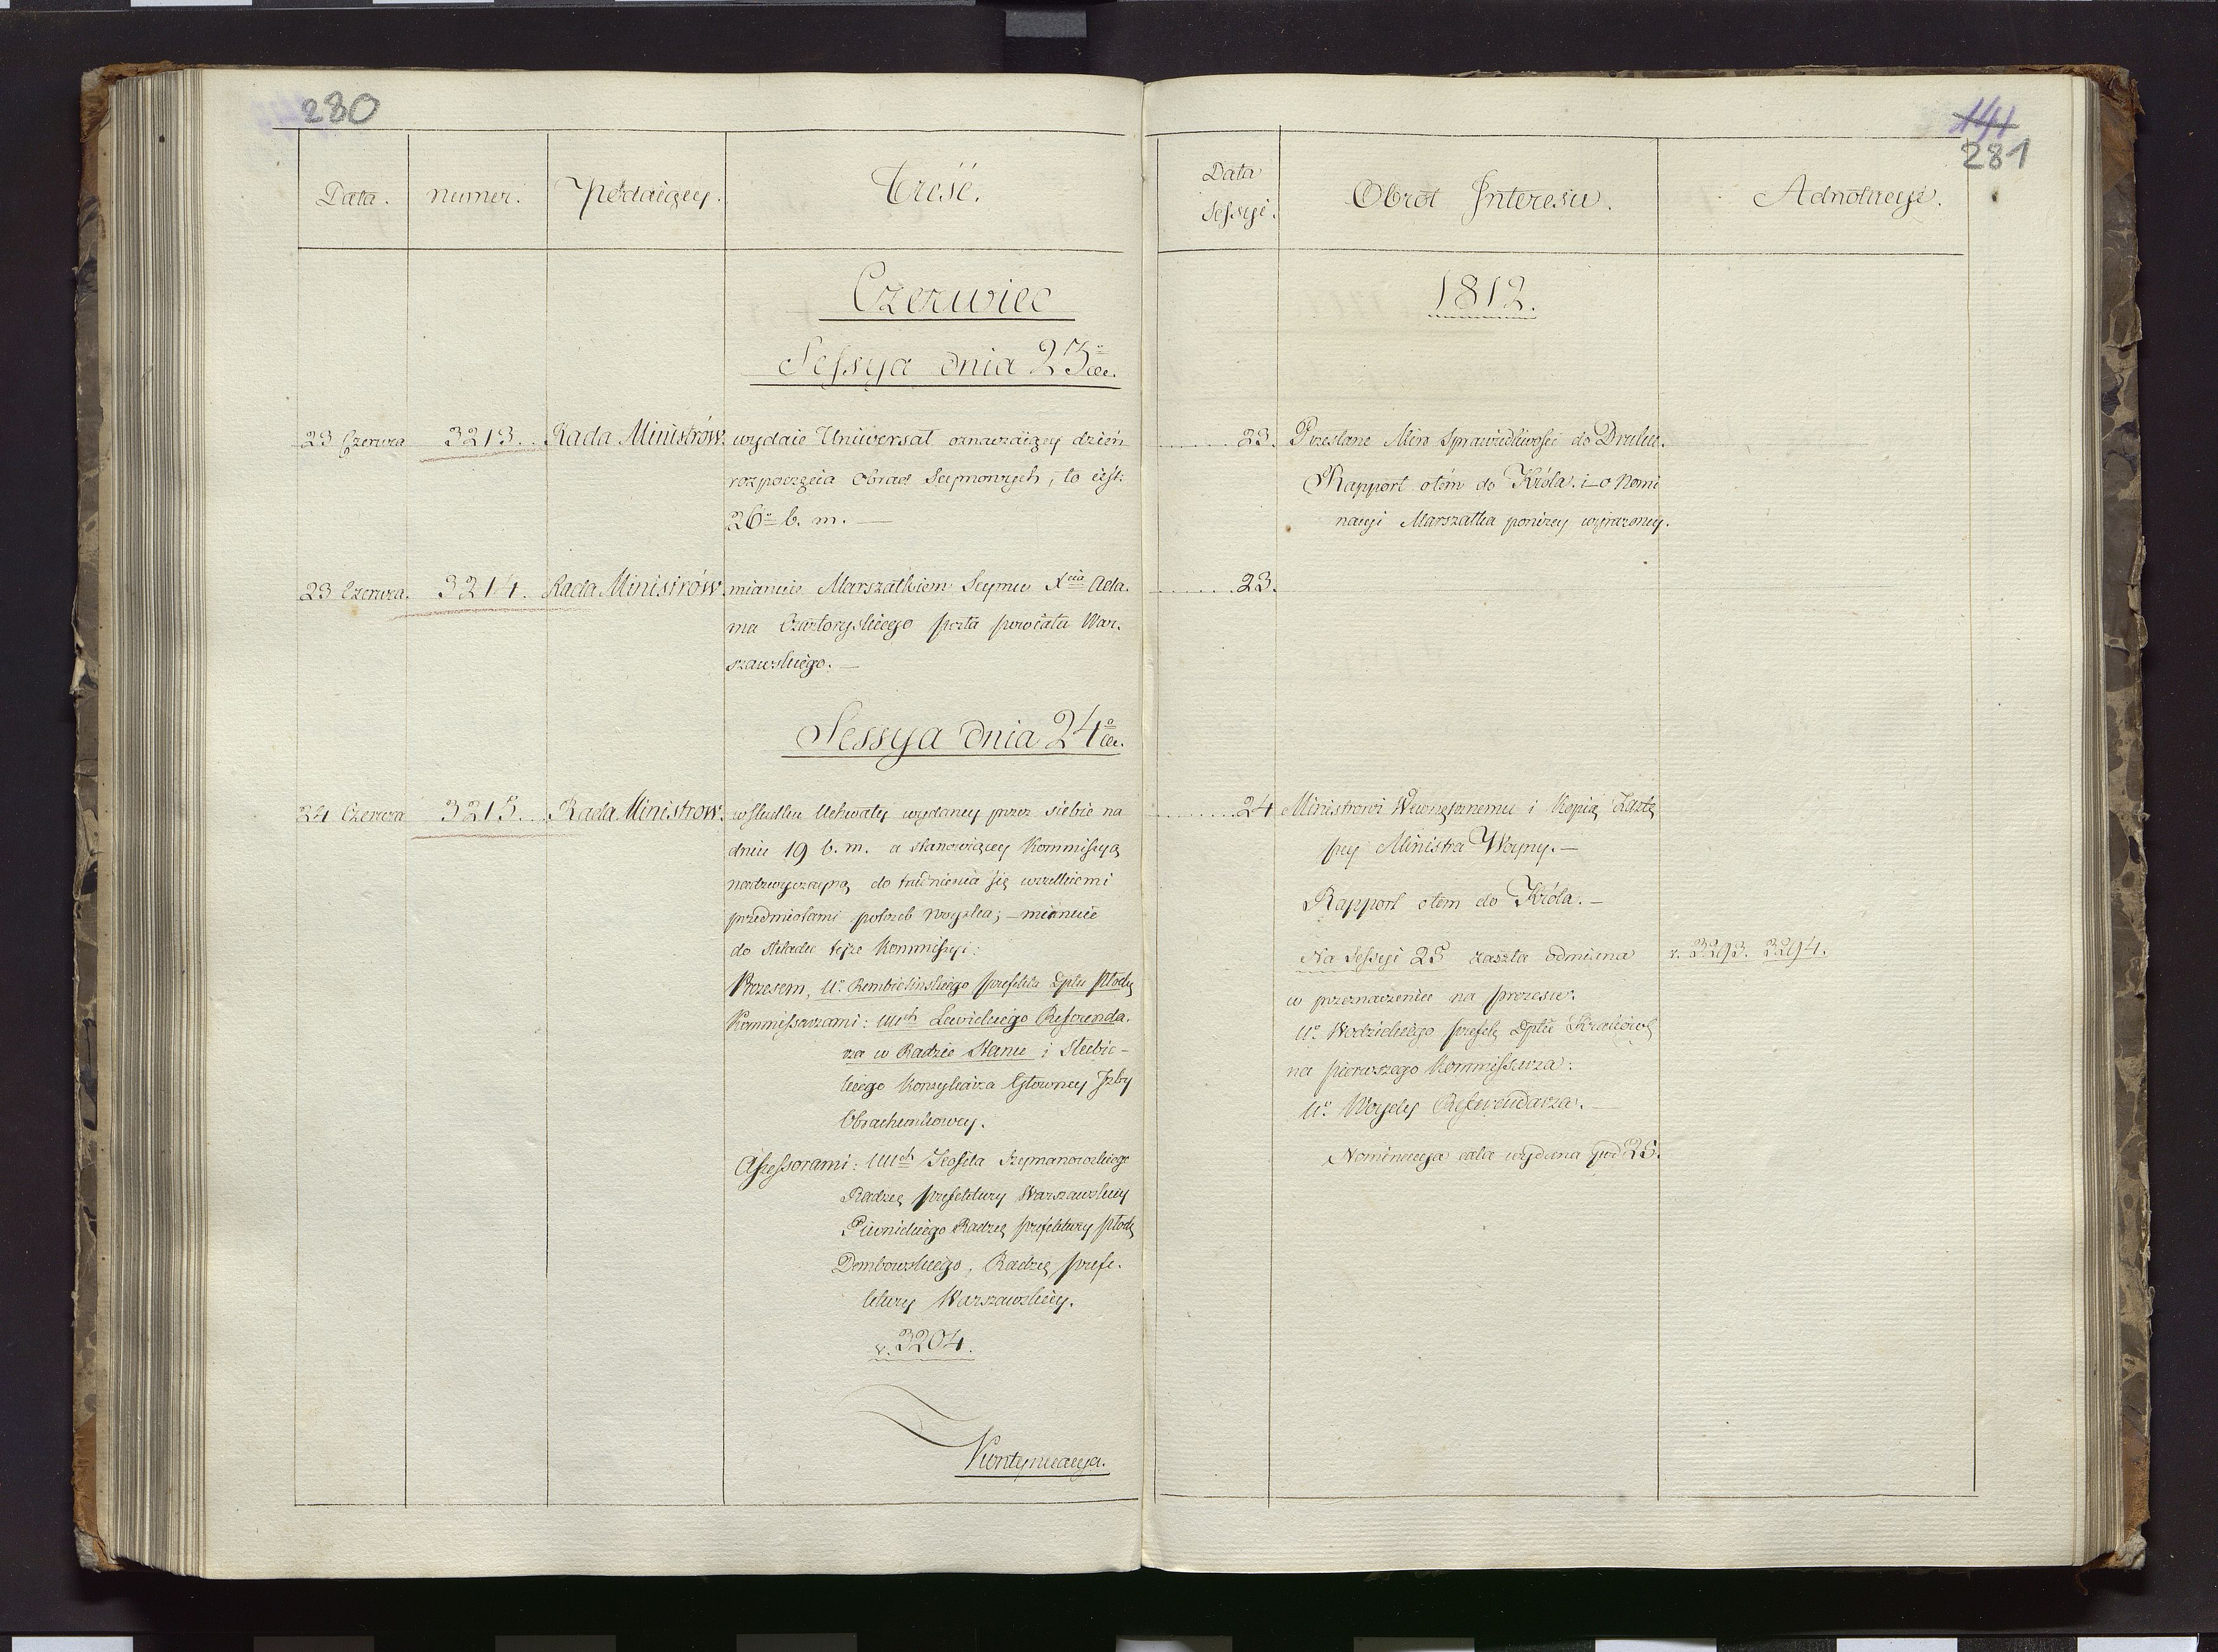 280
Data.
numer.
Podaiący.
Treść.
Czerwiec
Sessya dnia 23º
23 Czerwca 3213. Rada Ministrów. wydaie Uniwersał oznaczaiący dzień
rozpoczęcia Obrad Seymowych, to iest:
26º b. m. —
23 Czerwca. 3214. Rada Ministrów. mianuie Marszałkiem Seymu Xcia Ada.
ma Czartoryskiego posła powiatu War.
szawskiego. —
Sessya dnia 24º
24 Czerwca 3215. Rada Ministrow. wskutku Uchwały wydaney przez siebie na
dniu 19 b. m. a stanowiącey Kommissyą
nadzwyczayną do trudnienia się wszelkiemi
przedmiotami potrzeb woyska; – mianuie
do składu teyże Kommissyi:
Prezesem, Uº Rembielinskiego prefekta Dptu Płock
Kommissarzami: UUch Lewickiego Referenda.
rza w Radzie Stanu i Skubic-
kiego Konsyliarza Głowney Izby
Obrachunkowey.
Assessorami: UUch Teofila Szymanowskiego
Radzcę prefektury Warszawskiey
Piwnickiego Radzcę prefektury Płock
Dembowskiego, Radzcę prefe.
ktury Warszawskiey.
v. 3204.
Kontynuacya.
141
281
Data
Sessyi.
Obrot Interesu.
Adnotacye.
1812.
23. Przesłane Min Sprawiedliwości do Druku.
Rapport otém do Króla. i o Nomi
nacyi Marszałka poniżey wyrażoney.
23.
24 Ministrowi Wewnętrznemu i Kopią Zastę
pcy Ministra Woyny. —
Rapport otem do Króla. —
Na Sessyi 25 zaszła odmiana v. 3293. 3294.
w przeznaczeniu na prezesa:
Uº Wodzickiego prefek Dptu Krakowsk
na pierwszego Kommissarza:
Uº Woydy Referendarza. —
Nominacya cała wydana pod 25.